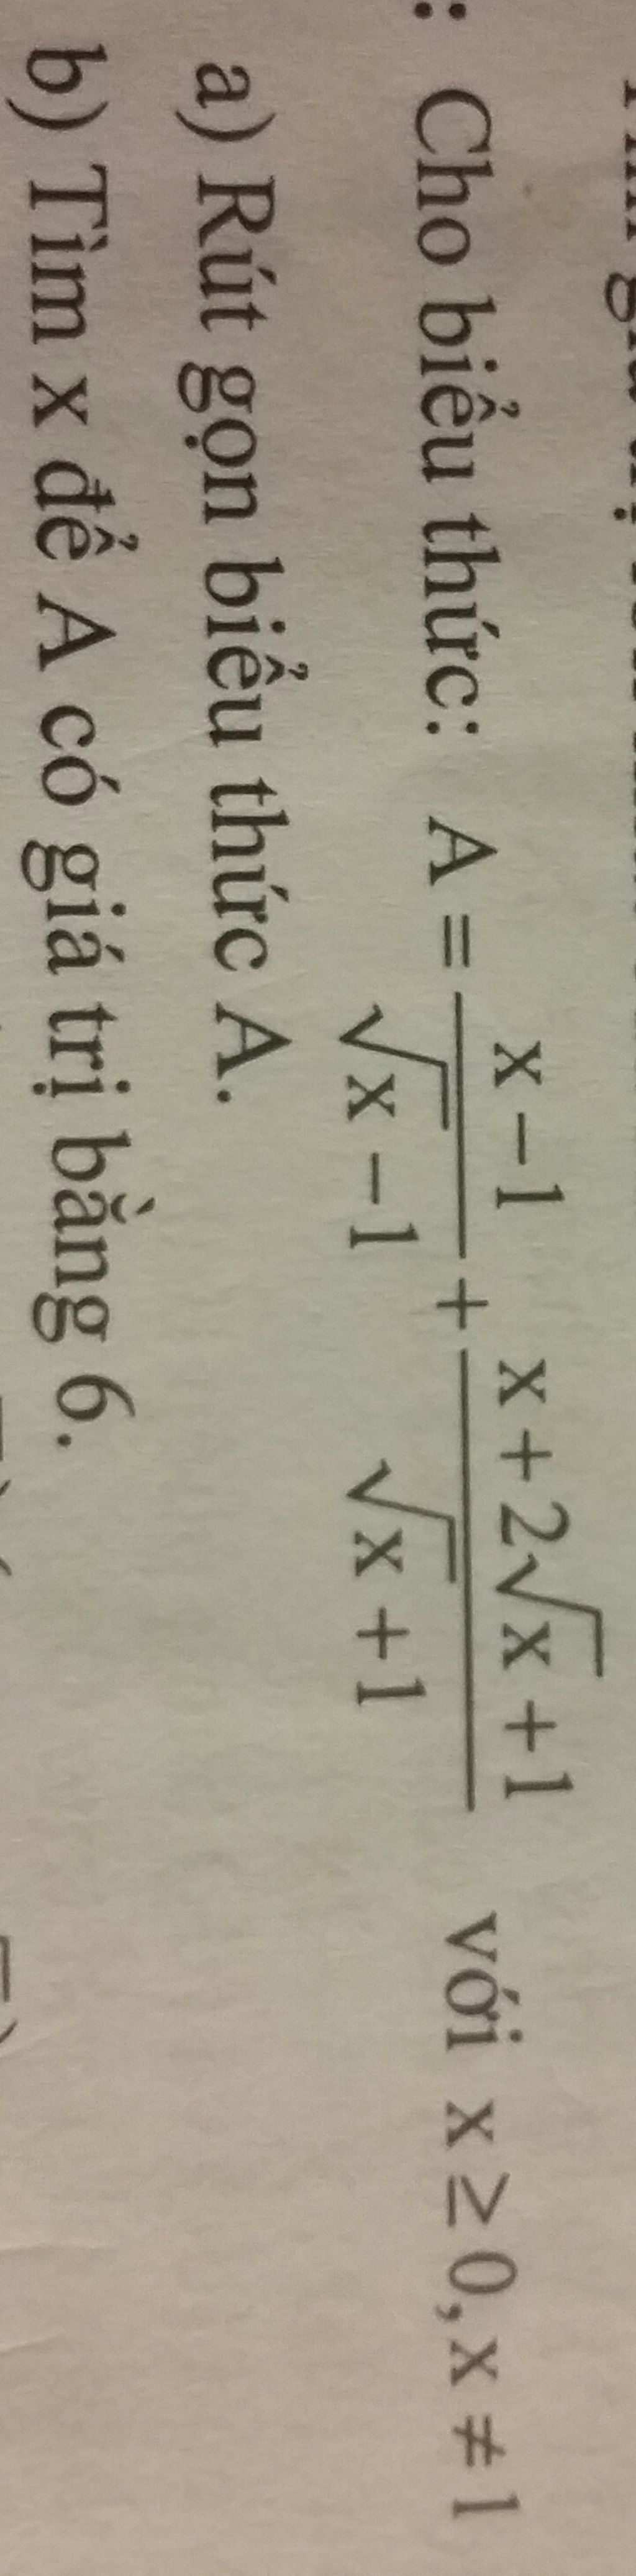 : Cho biểu thức: A = \frac{x-1}{\sqrt{x}-1} + \frac{x+2\sqrt{x}+1}{\sqrt{x}+1} với x ≥ 0, x ≠ 1
a) Rút gọn biểu thức A.
b) Tìm x để A có giá trị bằng 6.